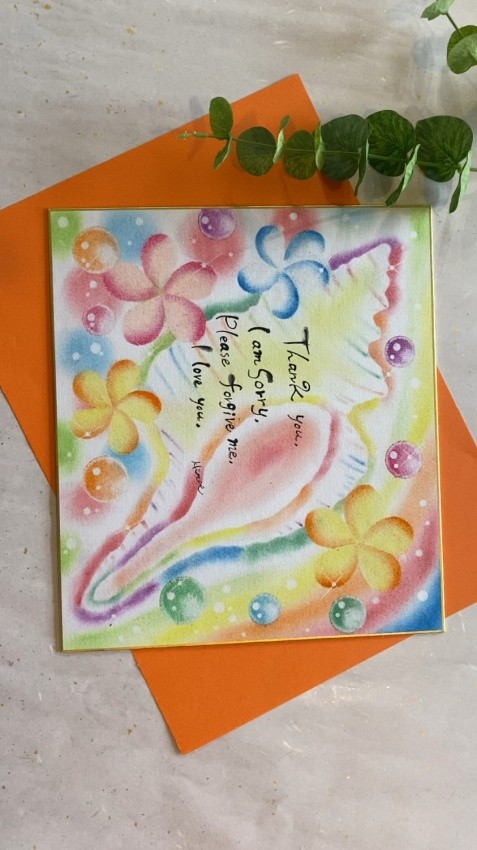 Thank you.
I am Sorry.
Please forgive me.
I love you.